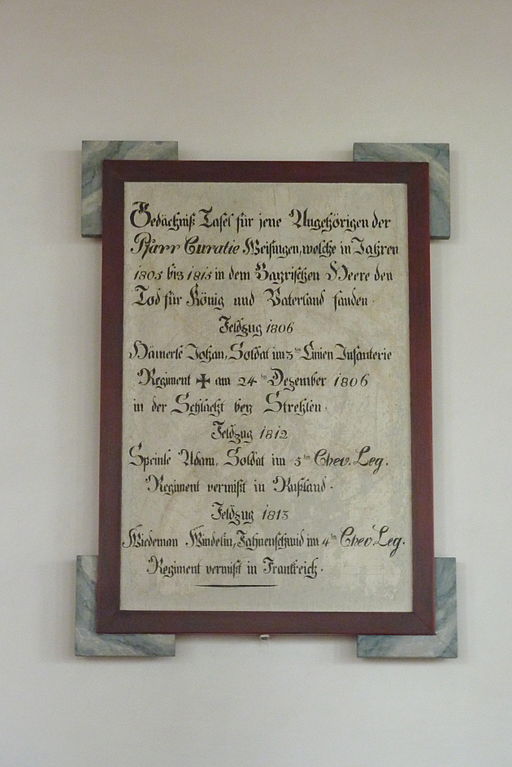 Gedächtniß Tafel für jene Angehörigen der
Pfarr Curatie Weisingen, welche in Jahren
1805 bis 1815 in dem Bayrischen Heere den
Tod für König und Vaterland fanden.
Feldzug 1806
Hämerle Johan, Soldat im 3ten Linien Infanterie
Regiment ✠ am 24ten Dezember 1806
in der Schlacht bey Strehlen.
Feldzug 1812
Speinle Adam, Soldat im 5ten Chev. Leg.
Regiment vermißt in Rußland.
Feldzug 1813
Wiedeman Windelin, Fahnenschmid im 4ten Chev Leg.
Regiment vermißt in Frankreich.